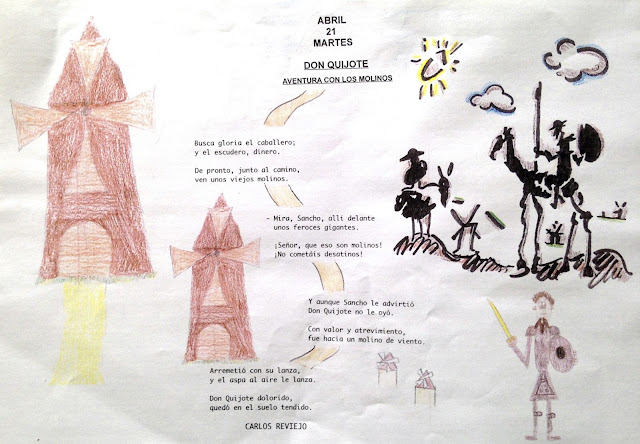 ABRIL
21
MARTES
DON QUIJOTE
AVENTURA CON LOS MOLINOS
Busca gloria el caballero;
y el escudero, dinero.
De pronto, junto al camino,
ven unos viejos molinos.
- Mira, Sancho, allí delante
unos feroces gigantes.
¡Señor, que eso son molinos!
¡No cometáis desatinos!
Y aunque Sancho le advirtió
Don Quijote no le oyó.
Con valor y atrevimiento,
fue hacia un molino de viento.
Arremetió con su lanza,
y el aspa al aire le lanza.
Don Quijote dolorido,
quedó en el suelo tendido.
CARLOS REVIEJO